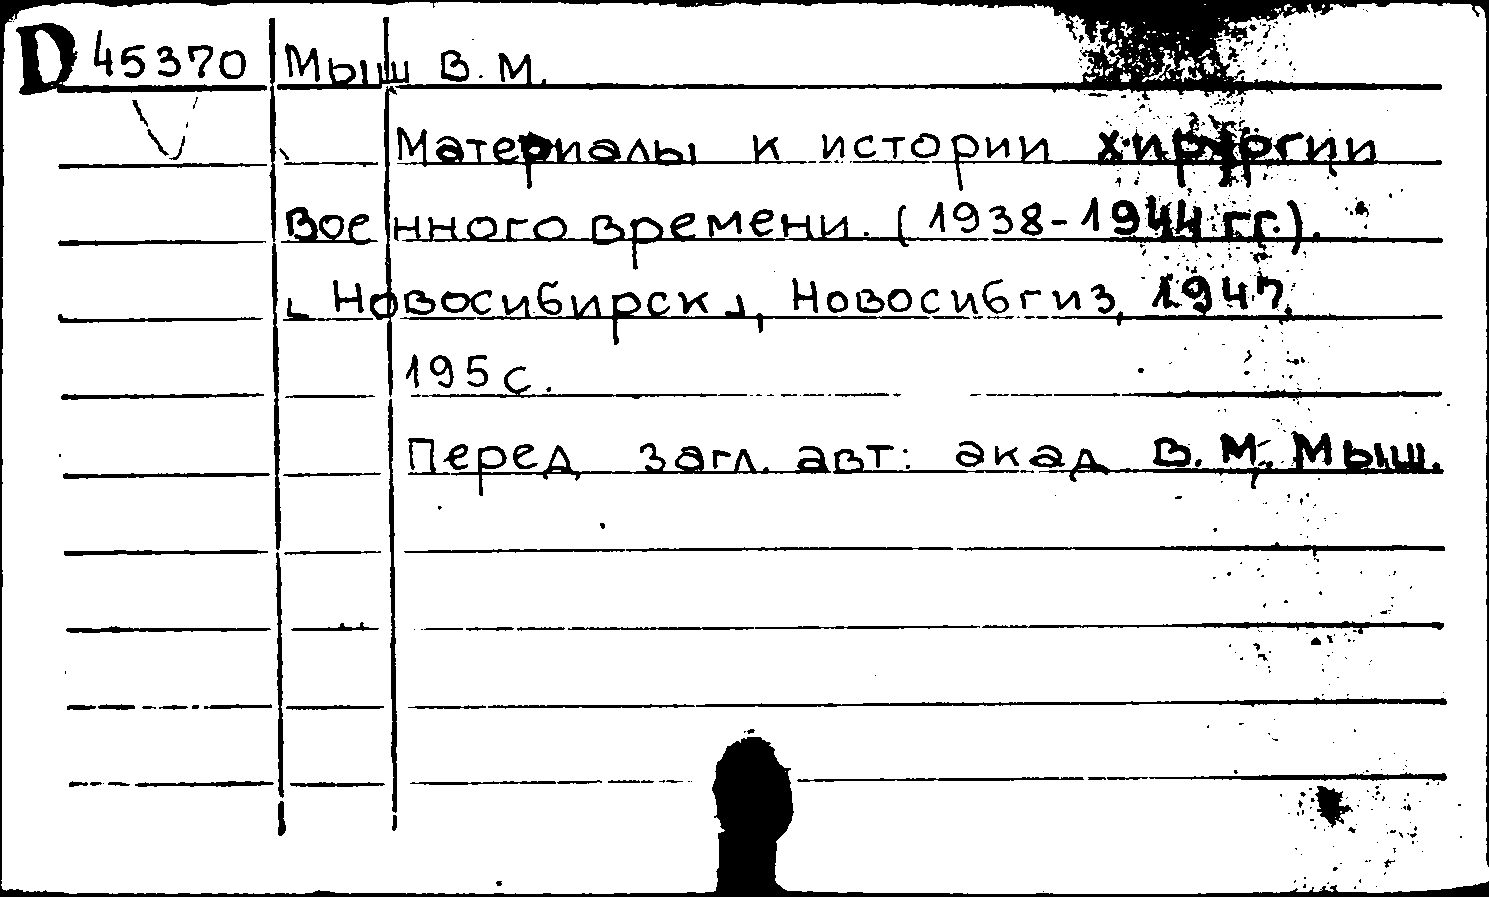 D 45370 Мыш В. М.
Материалы к истории хирургии
военного времени. (1938-1944 гг.).
[Новосибирск], Новосибгиз, 1947.
195 с.
Перед загл. авт: акад В. М. Мыш.